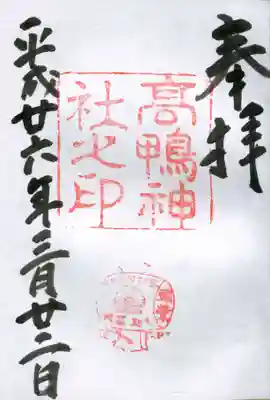 奉拝
高鴨神
社之印
平成廿六年三月廿二日